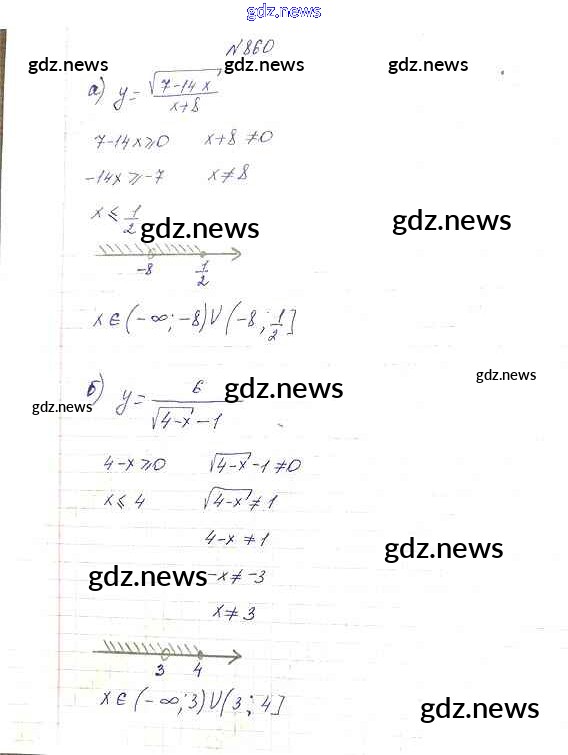 gdz.news
N 860
gdz.news gdz.news gdz.news
а) y = √(7-14x) / x+8
7-14x ⩾ 0 x+8 ≠ 0
-14x ⩾ -7 x ≠ 8
x ⩽ 1/2
gdz.news gdz.news
-8 1/2
x ∈ (-∞; -8) U (-8; 1/2]
gdz.news
б) y = 6 / √(4-x) - 1
gdz.news gdz.news
4-x ⩾ 0 √(4-x) - 1 ≠ 0
x ⩽ 4 √(4-x) ≠ 1
4-x ≠ 1
gdz.news
gdz.news -x ≠ -3
x ≠ 3
3 4
x ∈ (-∞; 3) U (3; 4]
gdz.news